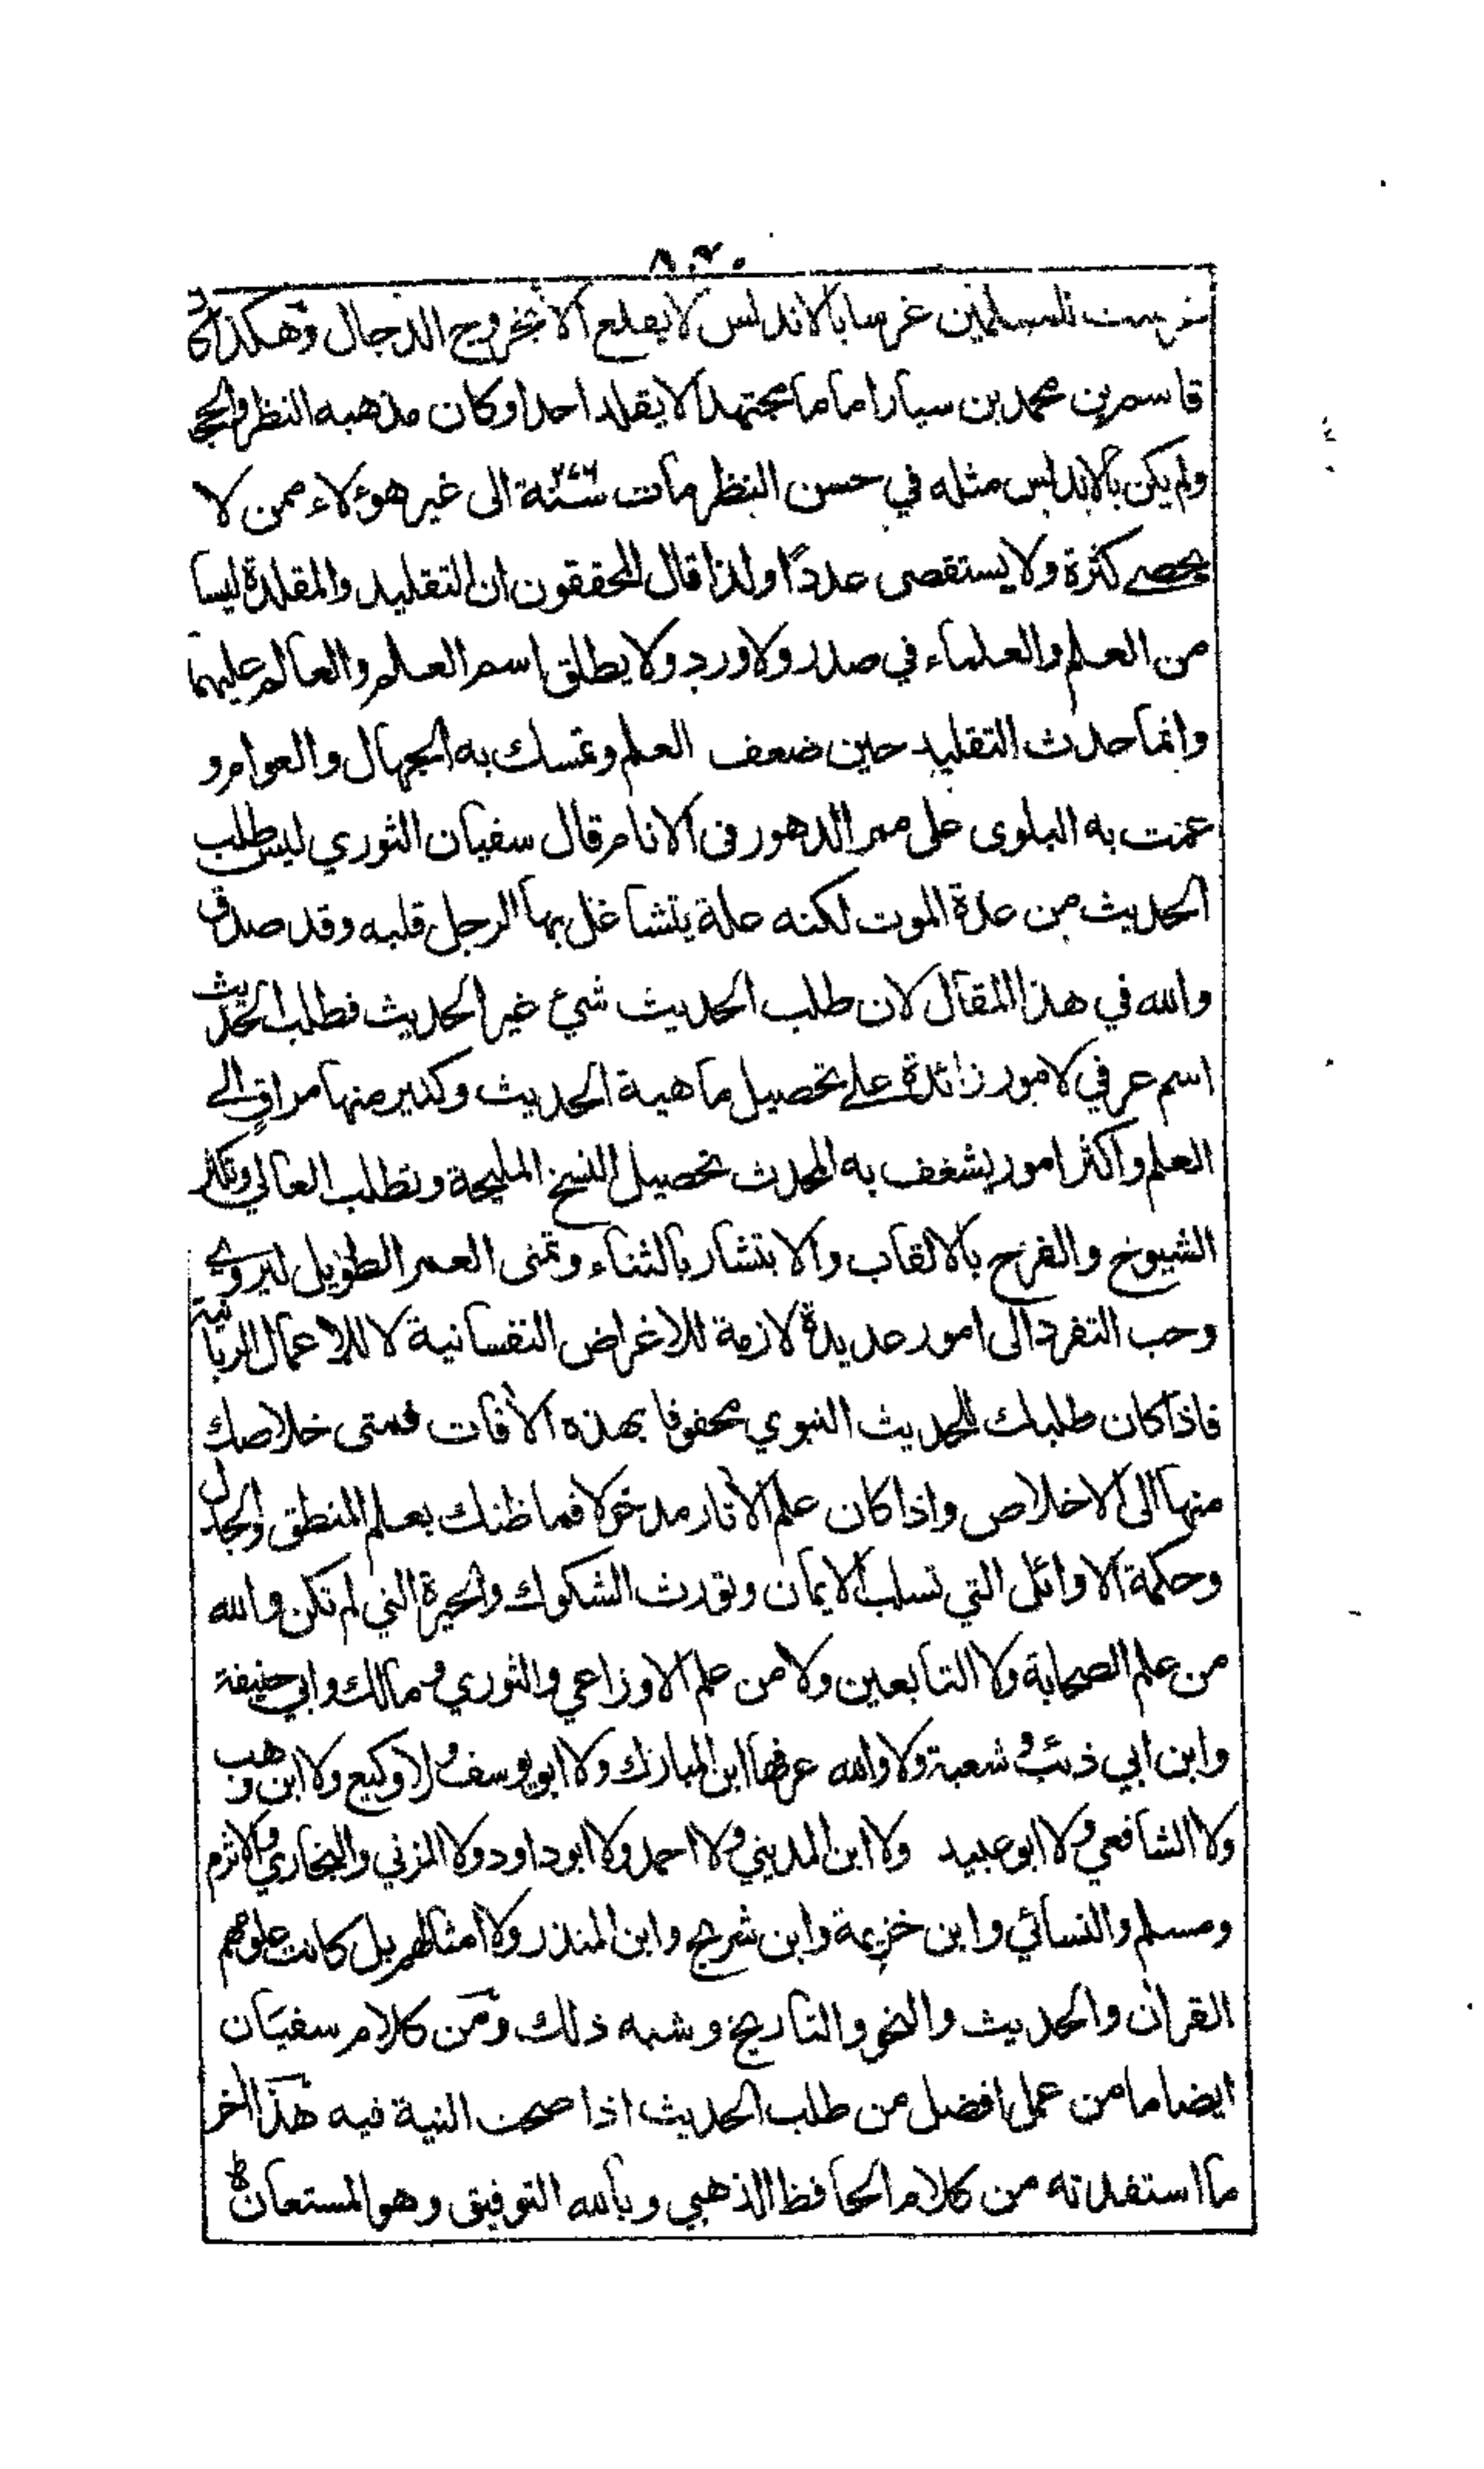 غرست للمسلمين غرسا بالاندلس لا يقلع الا بخروج الدجال وهكذا كان
قاسم بن محمد بن سيار اماما مجتهدا لا يقلد احدا وكان مذهبه النظر والحجة
ولم يكن بالاندلس مثله في حسن النظر مات سنة ٢٧٦ الى غير هؤلاء ممن لا
يحصے كثرة ولا يستقصى عددًا ولذا قال المحققون ان التقليد والمقلدة ليسا
من العلم والعلماء في صدر ولا ورد ولا يطلق اسم العلم والعالم عليهما
وانما حدث التقليد حين ضعف العلم وتمسك به الجهال والعوام و
عمت به البلوى على ممر الدهور في الانام قال سفيان الثوري ليس طلب
الحديث من عدة الموت لكنه علة يتشاغل بها الرجل قلبه وقد صدق
والله في هذا المقال لان طلب الحديث شيء غير الحديث فطلب الحديث
اسم عرفي لامور زائدة علے تحصيل ماهية الحديث وكثير منها مراق الے
العلم واكثر امور يشغف به المحدث تحصيل النسخ المليحة وتطلب العالي وتكثر
الشيوخ والفرح بالالقاب والابتشار بالثناء وتمنى العمر الطويل ليروے
وحب التفرد الى امور عديدة لازمة للاغراض النفسانية لا للاعمال الربانية
فاذا كان طلبك للحديث النبوي محفوفا بهذه الآفات فمتى خلاصك
منها الى الاخلاص واذا كان علم الآثار مدخولا فما ظنك بعلم المنطق والجدل
وحكمة الاوائل التي تسلب الايمان وتورث الشكوك والحيرة التي لم تكن والله
من علم الصحابة ولا التابعين ولا من علم الاوزاعي والثوري ومالك وابي حنيفة
وابن ابي ذئب وشعبة ولا والله عرفها ابن المبارك ولا ابو يوسف ولا وكيع ولا ابن وهب
ولا الشافعي ولا ابو عبيد ولا ابن المديني ولا احمد ولا ابو داود ولا المزني والبخاري والاثرم
ومسلم والنسائي وابن خزيمة وابن شريح وابن المنذر ولا امثالهم بل كانت علومهم
القرآن والحديث والنحو والتاريخ وشبه ذلك ومن كلام سفيان
ايضا ما من عمل افضل من طلب الحديث اذا صحت النية فيه هذا آخر
ما استفدته من كلام الحافظ الذهبي وبالله التوفيق وهو المستعان